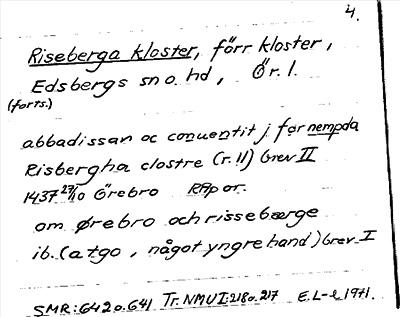 4.
Riseberga kloster, förr kloster,
Edsbergs sn o. hd, Ör. l.
(forts.)
abbadissan oc conuentit j fornempda
Risbergha clostre (r. 11) brev II
1437 27/10 Örebro RAp or.
om Ørebro och rissebærge
ib. (atgo, något yngre hand) brev I
SMR: 642 o. 641 Tr. NMU I: 218 o. 217 E. L-l 1971.